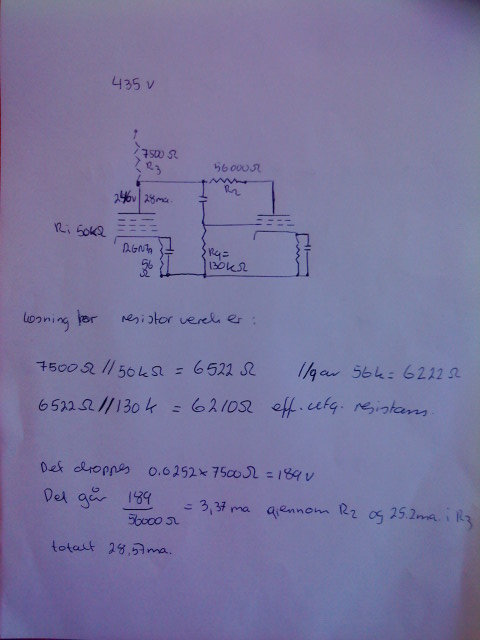 435 v
7500Ω
R3
56000Ω
R2
246v 28ma.
Ri 50kΩ
12GN7A
56
Ω
R4=
130kΩ
Løsning for resistor verdier :
7500Ω // 50kΩ = 6522Ω // gar 56k = 6222Ω
6522Ω // 130k = 6210Ω eff. utg. resistans.
Det droppes 0.0252 x 7500Ω = 189 v
Det går 189 / 56000Ω = 3,37 ma gjennom R2 og 25.2ma. i R3
totalt 28,57ma.